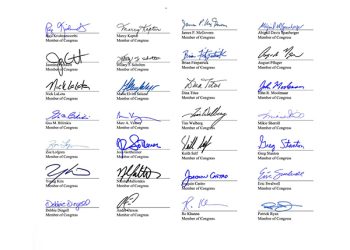 Raja Krishnamoorthi
Member of Congress
Marcy Kaptur
Member of Congress
James P. McGovern
Member of Congress
Abigail Davis Spanberger
Member of Congress
Member of Congress
Member of Congress
Brian Fitzpatrick
Member of Congress
August Pfluger
Member of Congress
Nick LaLota
Member of Congress
Maria Elvira Salazar
Member of Congress
Dina Titus
Member of Congress
John R. Moolenaar
Member of Congress
Gus M. Bilirakis
Member of Congress
Marc A. Veasey
Member of Congress
Tim Walberg
Member of Congress
Mikie Sherrill
Member of Congress
Zoe Lofgren
Member of Congress
Member of Congress
Keith Self
Member of Congress
Greg Stanton
Member of Congress
Young Kim
Member of Congress
Member of Congress
Joaquin Castro
Member of Congress
Eric Swalwell
Member of Congress
Debbie Dingell
Member of Congress
Member of Congress
Ro Khanna
Member of Congress
Patrick Ryan
Member of Congress